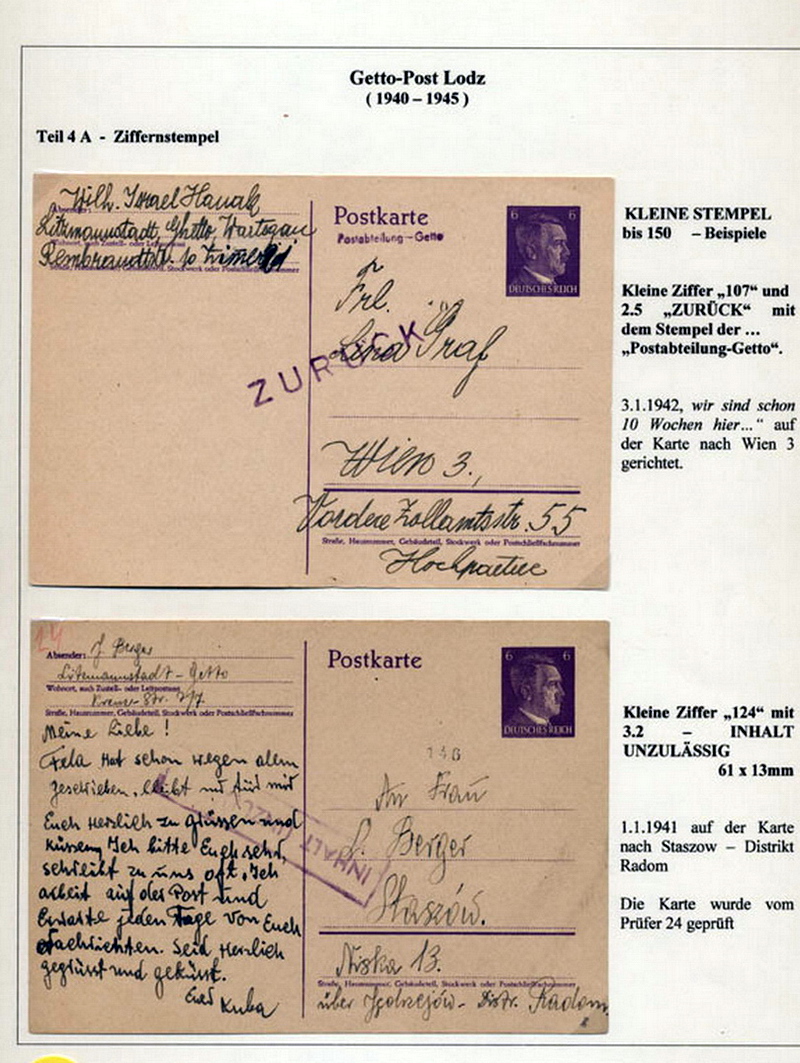 Getto-Post Lodz
( 1940 – 1945 )
Teil 4 A - Ziffernstempel
Absender:
Wilh. Israel Hanak
Litzmannstadt, Ghetto, Wartegau
Wohnort, auch Zustell- oder Leitpostamt
Rembrandtstr. 10 Zimer 21
Straße, Hausnummer, Gebäudeteil, Stockwerk oder Postschließfachnummer
Postkarte
Postabteilung-Getto
6 6
DEUTSCHES REICH
Frl.
Lina Graf
ZURÜCK
Wien 3.,
Vordere Zollamtsstr. 55
Straße, Hausnummer, Gebäudeteil, Stockwerk oder Postschließfachnummer
Hochpartere
KLEINE STEMPEL
bis 150 – Beispiele
Kleine Ziffer „107“ und
2.5 „ZURÜCK“ mit
dem Stempel der ...
„Postabteilung-Getto“.
3.1.1942, wir sind schon
10 Wochen hier...“ auf
der Karte nach Wien 3
gerichtet.
Absender: J. Berger
Litzmannstadt - Getto
Wohnort, auch Zustell- oder Leitpostamt
Straße, Hausnummer, Gebäudeteil, Stockwerk oder Postschließfachnummer
Meine Liebe!
Fela hat schon wegen allem
geschrieben, bleibt nur für mir
Euch herzlich zu grüssen und
küssen. Ich bitte Euch sehr,
schreibt zu uns oft. Ich
arbeit auf der Post und
Erwarte jeden Tage von Euch
Nachrichten. Seid herzlich
gegrüsst und geküsst.
Euer Kuba
Postkarte
6 6
DEUTSCHES REICH
An Frau
Berger
INHALT
Staszów.
Niska 13.
Straße, Hausnummer, Gebäudeteil, Stockwerk oder Postschließfachnummer
über Jędrzejów - Distr. Radom
Kleine Ziffer „124“ mit
3.2 – INHALT
UNZULÄSSIG
61 x 13mm
1.1.1941 auf der Karte
nach Staszow – Distrikt
Radom
Die Karte wurde vom
Prüfer 24 geprüft